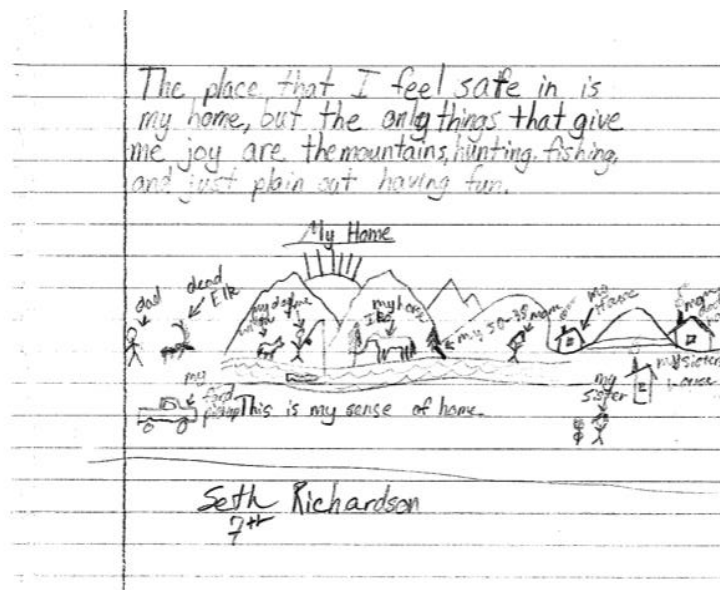 The place that I feel safe in is
my home, but the only things that give
me joy are the mountains, hunting, fishing,
and just plain out having fun.
My Home
dad
dead
Elk
my dog
me
my horse
my 30-35
mom
my
House
my
sister
my sisters
house
my
ford
pickup
This is my sense of home.
Seth Richardson
7th